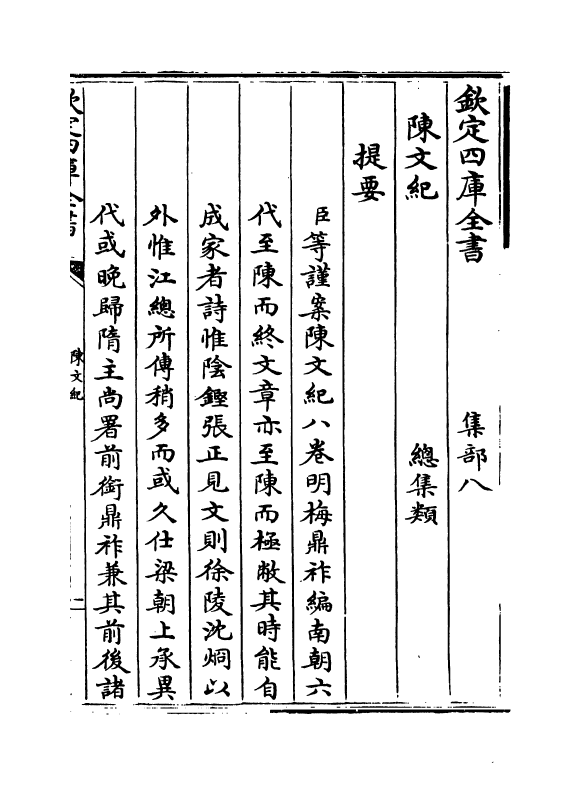 欽定四庫全書 集部八
陳文紀 總集類
提要
臣等謹案陳文紀八卷明梅鼎祚編南朝六
代至陳而終文章亦至陳而極敝其時能自
成家者詩惟陰鏗張正見文則徐陵沈烱以
外惟江總所傳稍多而或久仕梁朝上承異
代或晚歸隋主尚署前銜鼎祚兼其前後諸
欽定四庫全書 陳文紀